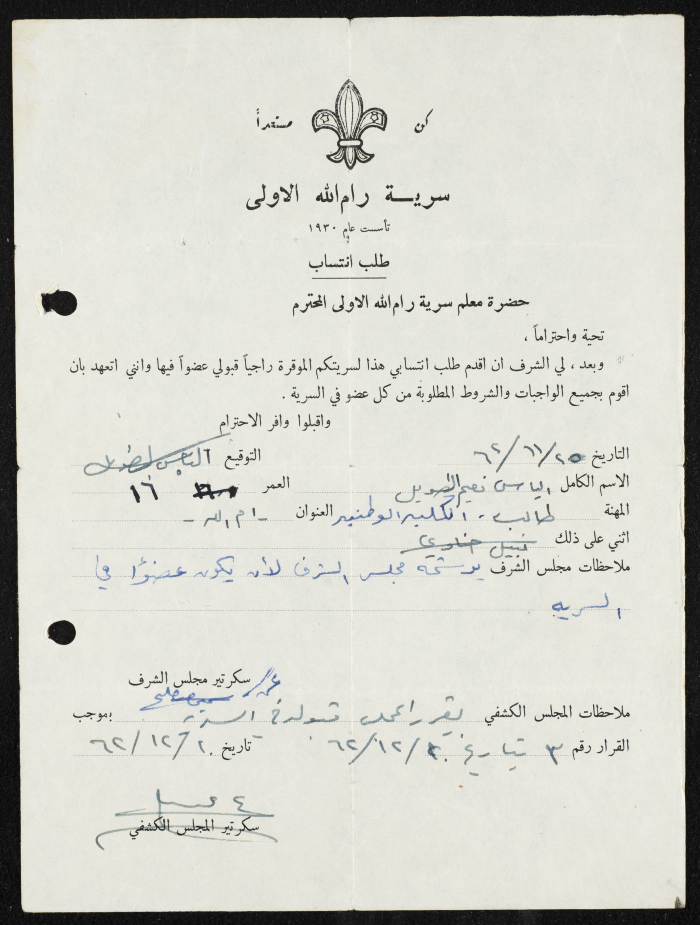 كن مستعداً
سرية رام الله الاولى
تأسست عام ١٩٣٠
طلب انتساب
حضرة معلم سرية رام الله الاولى المحترم
تحية واحتراماً ،
وبعد ، لي الشرف ان اقدم طلب انتسابي هذا لسريتكم الموقرة راجياً قبولي عضواً فيها وانني اتعهد بان
اقوم بجميع الواجبات والشروط المطلوبة من كل عضو في السرية .
واقبلوا وافر الاحترام
التاريخ ٢٥/١١/٦٢ التوقيع
الاسم الكامل الياس نعيم الطويل العمر ١٦
المهنة طالب - الكلية الوطنية العنوان - رام الله -
اثني على ذلك نبيل
ملاحظات مجلس الشرف يرشحه مجلس الشرف لأن يكون عضوًا في
السرية
سكرتير مجلس الشرف
ملاحظات المجلس الكشفي يقرر المجلس قبوله في السرية بموجب
القرار رقم ٣ بتاريخ ٢٠/١٢/٦٢ تاريخ ٢٠/١٢/٦٢
سكرتير المجلس الكشفي